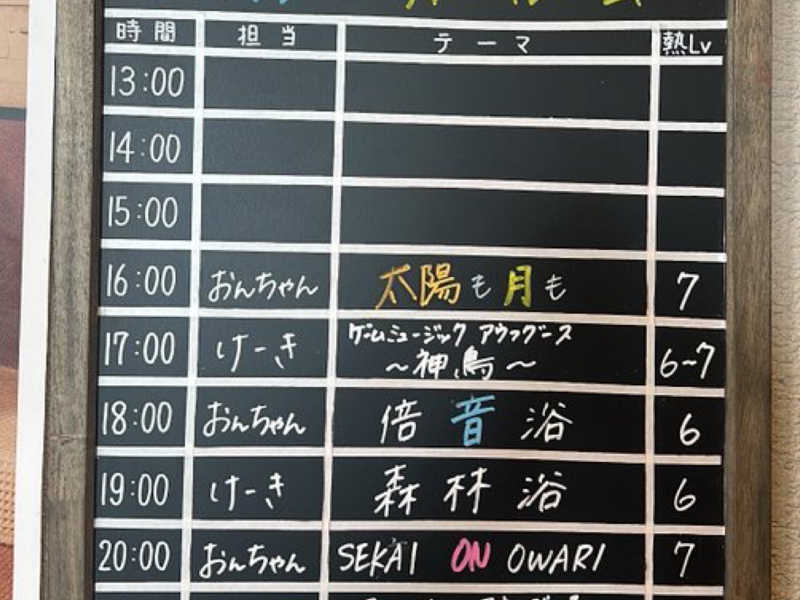 時間 担当 テーマ 熱Lv
13:00
14:00
15:00
16:00 おんちゃん 太陽も月も 7
17:00 けーき ゲームミュージック アウフグース 6~7
～神鳥～
18:00 おんちゃん 倍音浴 6
19:00 けーき 森林浴 6
20:00 おんちゃん SEKAI ON OWARI 7